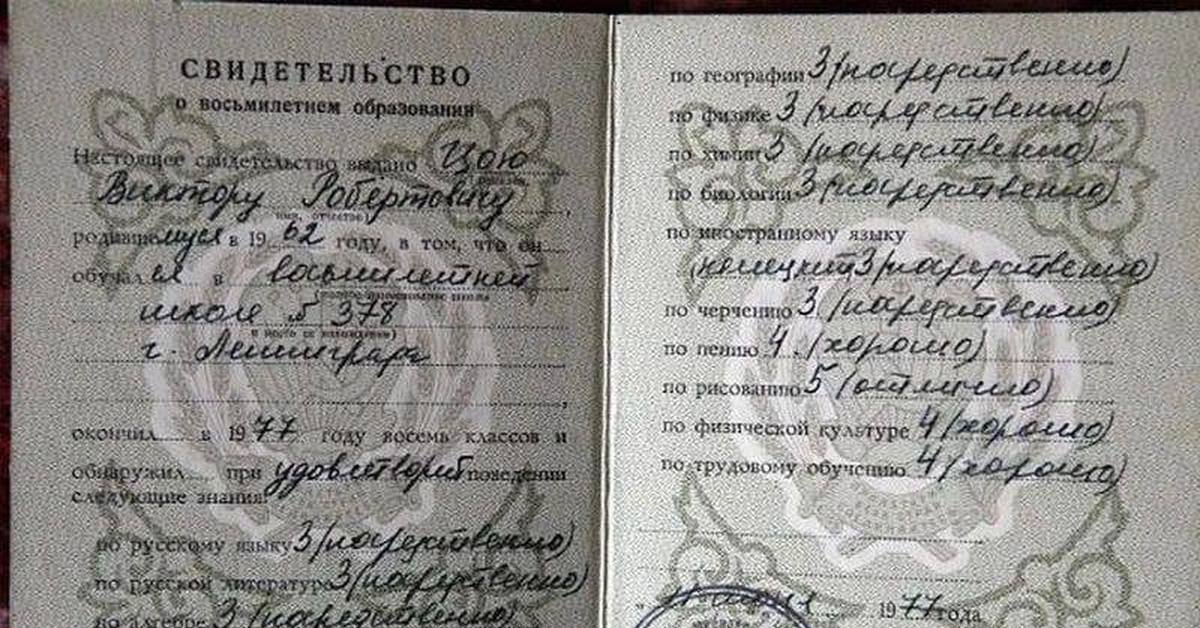 СВИДЕТЕЛЬСТВО
о восьмилетнем образовании
Настоящее свидетельство выдано Цою
Виктору Робертовичу
(имя, отчество)
родившемуся в 1962 году, в том, что он
обучался в восьмилетней
школе № 378
г. Ленинграда
окончил в 1977 году восемь классов и
обнаружил при удовлетворит поведении
следующие знания:
по русскому языку 3 (посредственно)
по русской литературе 3 (посредственно)
по алгебре 3 (посредственно)
по географии 3 (посредственно)
по физике 3 (посредственно)
по химии 3 (посредственно)
по биологии 3 (посредственно)
по иностранному языку
(немецкий) 3 (посредственно)
по черчению 3 (посредственно)
по пению 4 (хорошо)
по рисованию 5 (отлично)
по физической культуре 4 (хорошо)
по трудовому обучению 4 (хорошо)
1977 года